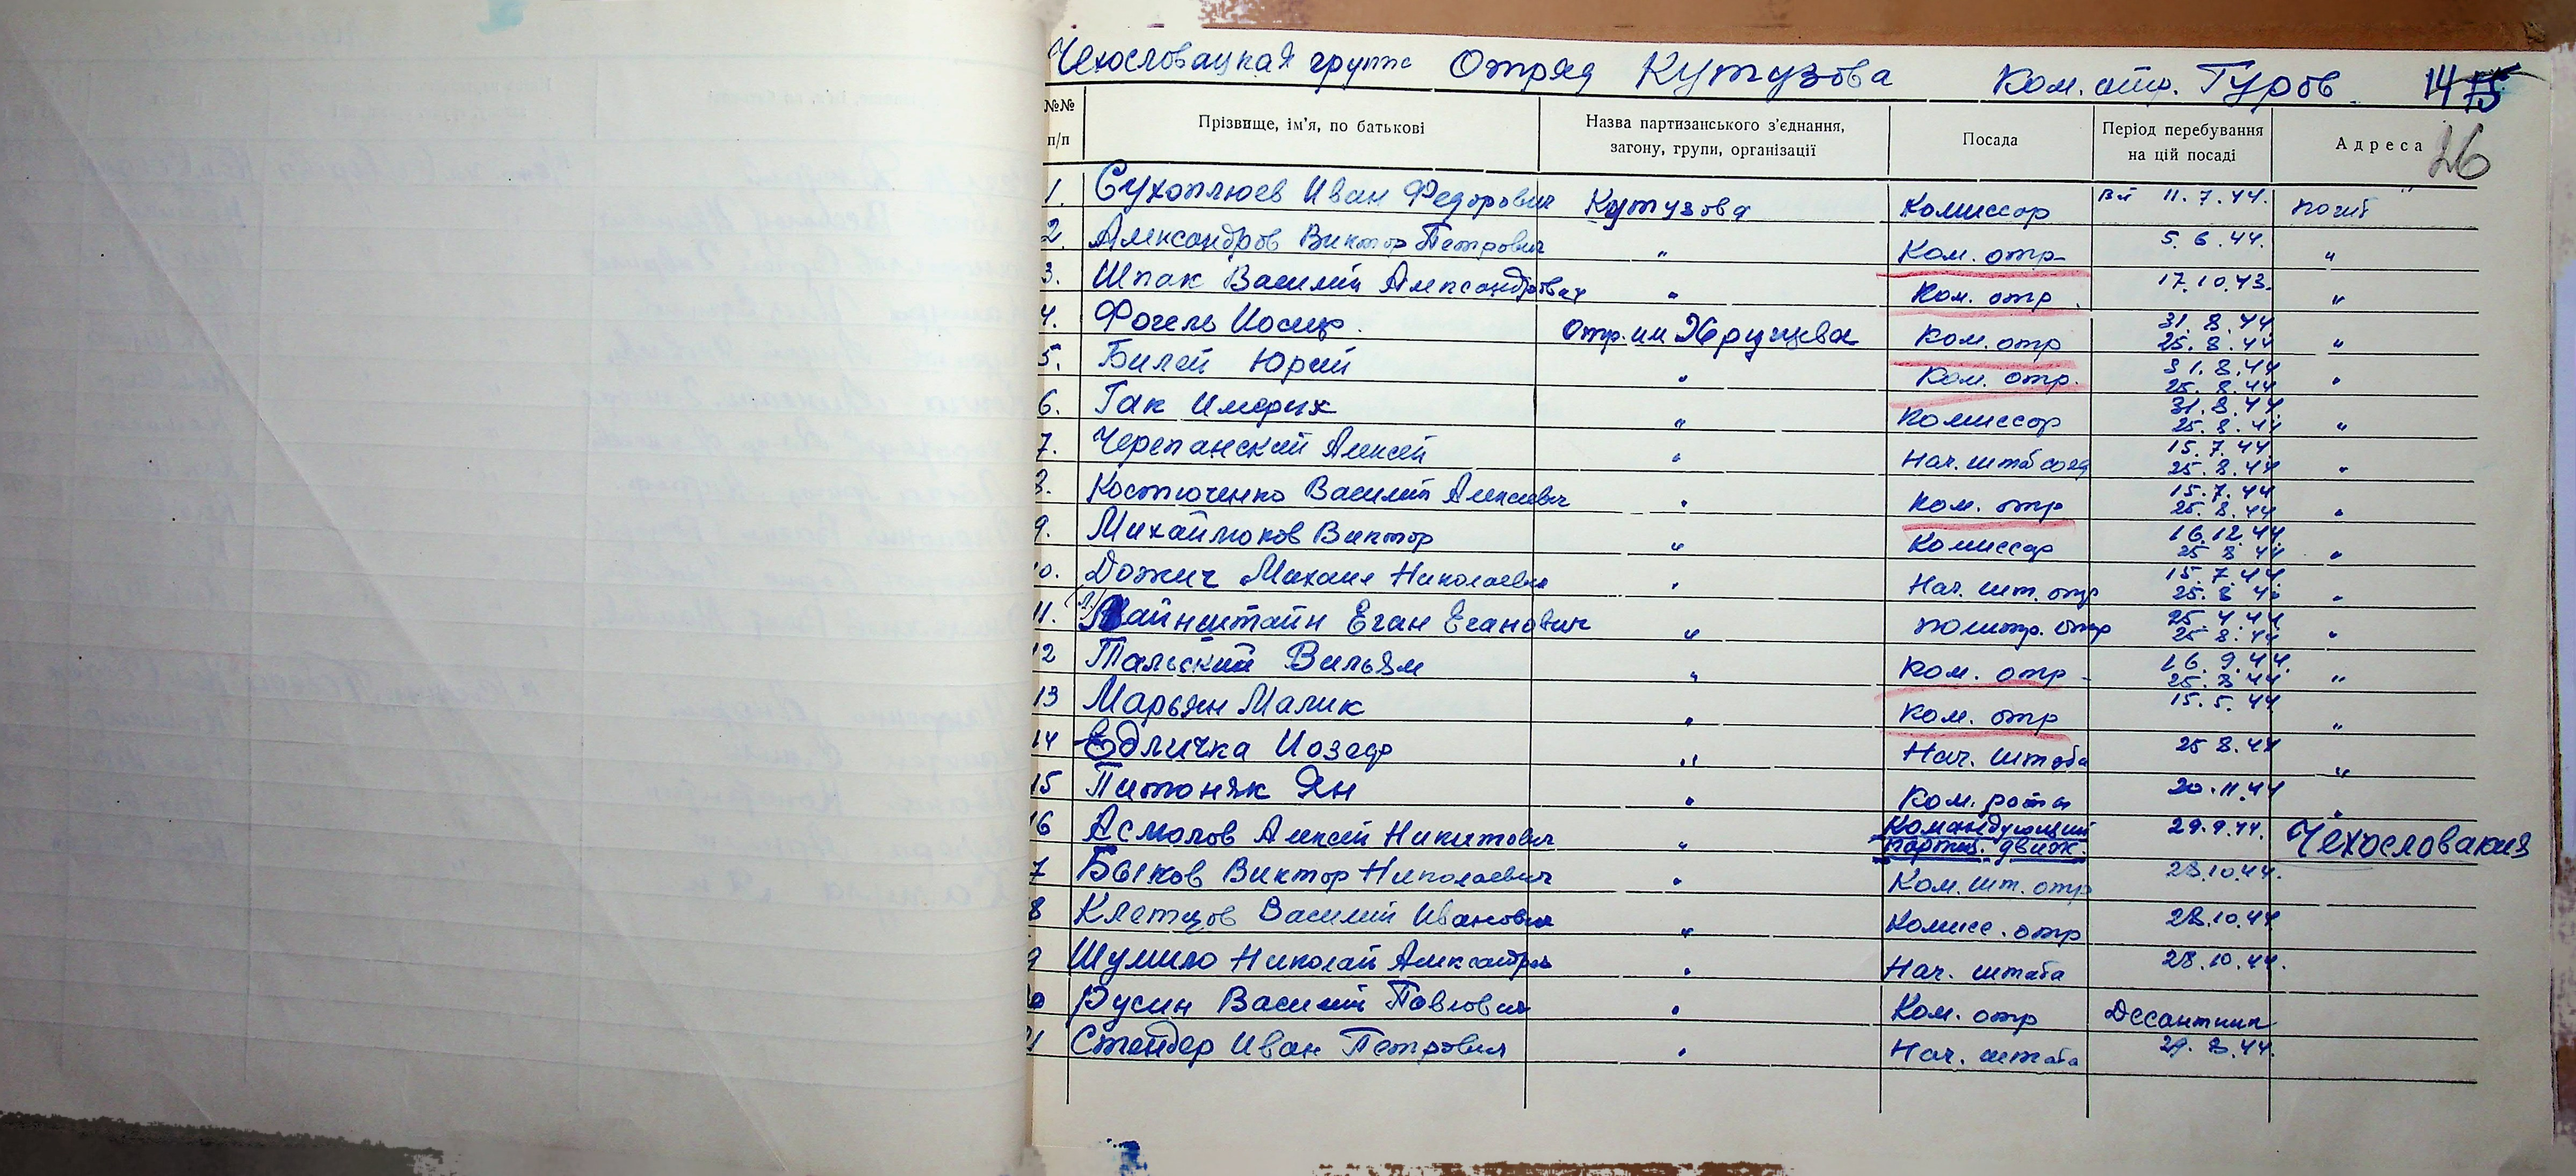 Чехословацкая группа Отряд Кутузова Ком. отр. Гуров 14
26
№№ п/п Прізвище, ім'я, по батькові Назва партизанського з'єднання, загону, групи, організації Посада Період перебування на цій посаді Адреса
1. Сухоплюев Иван Федорович Кутузова Комиссар 11.7.44. погиб
2. Александров Виктор Петрович " Ком. отр. 5.6.44. "
3. Шпак Василий Александрович " Ком. отр. 17.10.43. "
4. Фогель Иосиф. отр. им Хрущева Ком. отр 31.8.44 25.8.44 "
5. Билей Юрий " Ком. отр. 31.8.44 25.8.44 "
6. Гак Имерих " Комиссар 31.8.44. 25.8.44 "
7. Черепанский Алексей " Нач. штаб соед 15.7.44 25.8.44 "
8. Костюченко Василий Алексеевич " Ком. отр 15.7.44 25.8.44 "
9. Михайлюков Виктор " Комиссар 16.12.44. 25 8 44 "
10. Дожич Михаил Николаевич " Нач. шт. отр 15.7.44 25.8 "
11. айнштайн Еган Еганович " политр. отр 25.4.44 25 8.44 "
12 Тальский Вильям " Ком. отр 16.9.44. 25.8.44 "
13 Марьян Малик " Ком. отр 15.5.44. "
14 Едличка Иозеф " Нач. штаба 25 8.44 "
15 Питоняк Ян " Ком. роты 20.11.44 "
16 Асмолов Алексей Никитович " Командующий партиз. движ. 29.9.44. Чехословакия
7 Быков Виктор Николаевич " Ком. шт. отр 28.10.44.
8 Клетцов Василий Иванович " Комисс. отр 28.10.44
9 Шумило Николай Александров " Нач. штаба 28.10.44.
20 Русин Василий Павлович " Ком. отр Десантник
21 Стендер Иван Петрович " Нач. штаба 29.8.44.